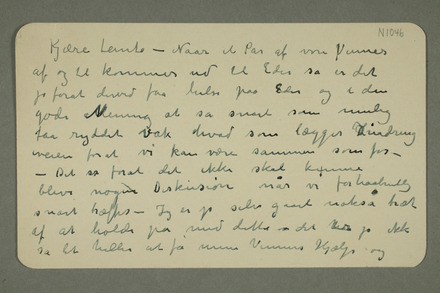 N1046
Kjære Lento – Naar et Par af vore Venner
af og til kommer ud til Eder sa er det
jo forat derved faa hilse paa Eder og i den
gode Mening at sa snart som mulig
faa ryddet væk hvad som lægger Hindring
veien forat vi kan være sammen som før –
– Det er forat det ikke skal komme
blive nogen Diskusion når vi forhaabentlig
snart træffes – Jeg er jo selv gaat også træt
af at holde på med dette så det jo ikke
så let heller at få mine Venners Hjælp og